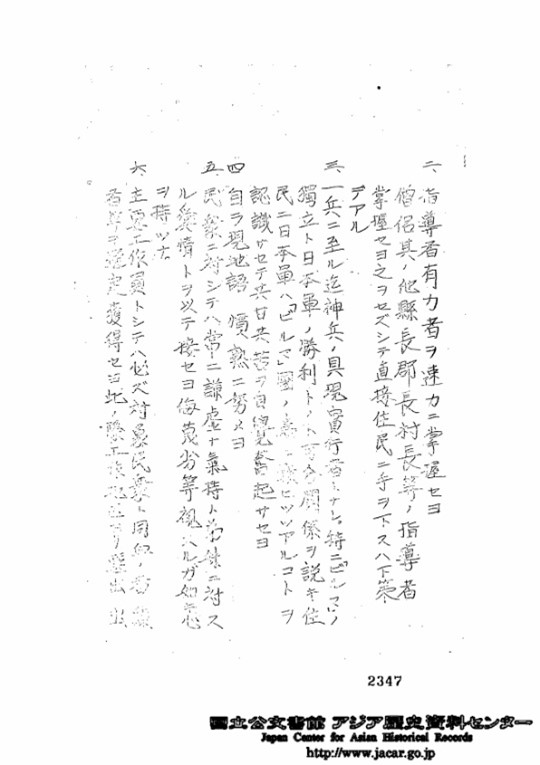 二、指導者有力者ヲ速カニ掌握セヨ
僧侶其ノ他縣長郡長村長等ノ指導者
掌握セヨ之ヲセズシテ直接住民ニ手ヲ下スハ下策
デアル
三、一兵ニ至ル迄神兵ノ具現實行者トナレ。特ニビルマノ
獨立ト日本軍ノ勝利トノ不可分關係ヲ説キ住
民ニ日本軍ハ「ビルマ」國ノ為ニ戰ヒツツアルコトヲ
認識サセテ共ヒ共苦ヲ自覺奮起サセヨ
四 自ラ現地語ノ慣熟ニ努メヨ
五、民衆ニ対シテハ常ニ謙虚ナ氣持ト弟妹ニ対ス
ル愛情トヲ以テ接セヨ侮蔑劣等視スルガ如キ心
ヲ持ツナ
六、主要工作員トシテハ必ズ対象民衆ト同
者等ヲ選定獲得セヨ此ノ際工作地
2347
國立公文書館 アジア歴史資料センター
Japan Center for Asian Historical Records
http://www.jacar.go.jp